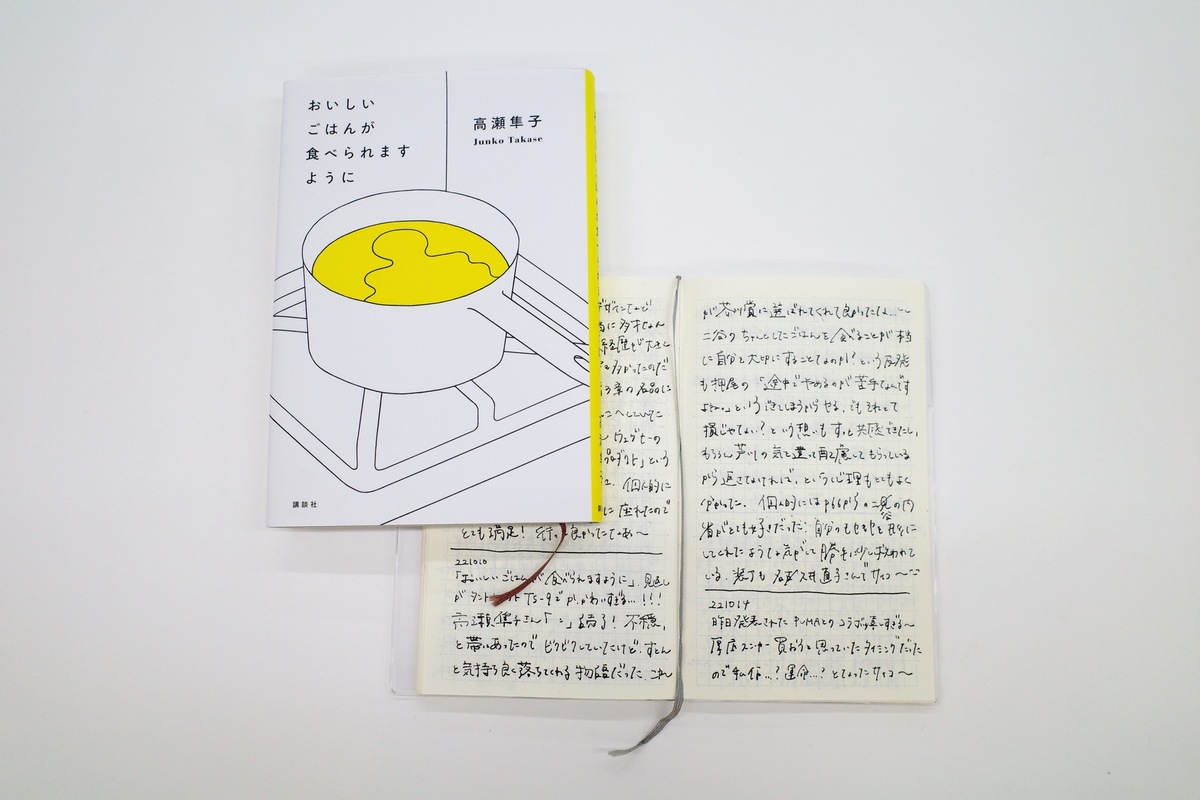 おいしい
ごはんが
食べられます
ように
高瀬隼子
Junko Takase
講談社
デザインなど
に多才な人
経歴が大きく
も多かったのだ
る章の名品に
こへしていた
ウェグナーの
プロダクト」という
個人的に
に座れたので
とても満足! 行って良かったなあ〜
221010
「おいしいごはんが食べられますように」、見返し
がタントセレクト TS-9でが、かわいすぎる…!!!
高瀬隼子さん「〃」読了! 不穏
と帯にあったのでビクビクしていたけど、すとん
と気持ち良く落ちてくれる物語だった。これ
が芥川賞に選ばれてくれて良かったな…〜
二谷のちゃんとしたごはんを食べることが本当
に自分を大切にすることなのか?という反発
も押尾の「途中でやめるのが苦手なんです
よね。」というできてしまうからやる、でもそれって
損じゃない?という想いもすっと共感できたし、
もちろん芦川の気を遣って配慮してもらっている
から返さなければ、という心理もとてもよく
分かった。個人的にはP66からの二谷の内
省がとても好きだった:自分のもやもやを
してくれたような気がして勝手に少し救われて
いる。装丁も 名久井直子さんでサイコ〜
221014
昨日発表された PUMAとのコラボが凄すぎる〜
厚底スニーカー買おうと思っていたタイミングだった
ので 私信…?運命…?となったサイコ〜